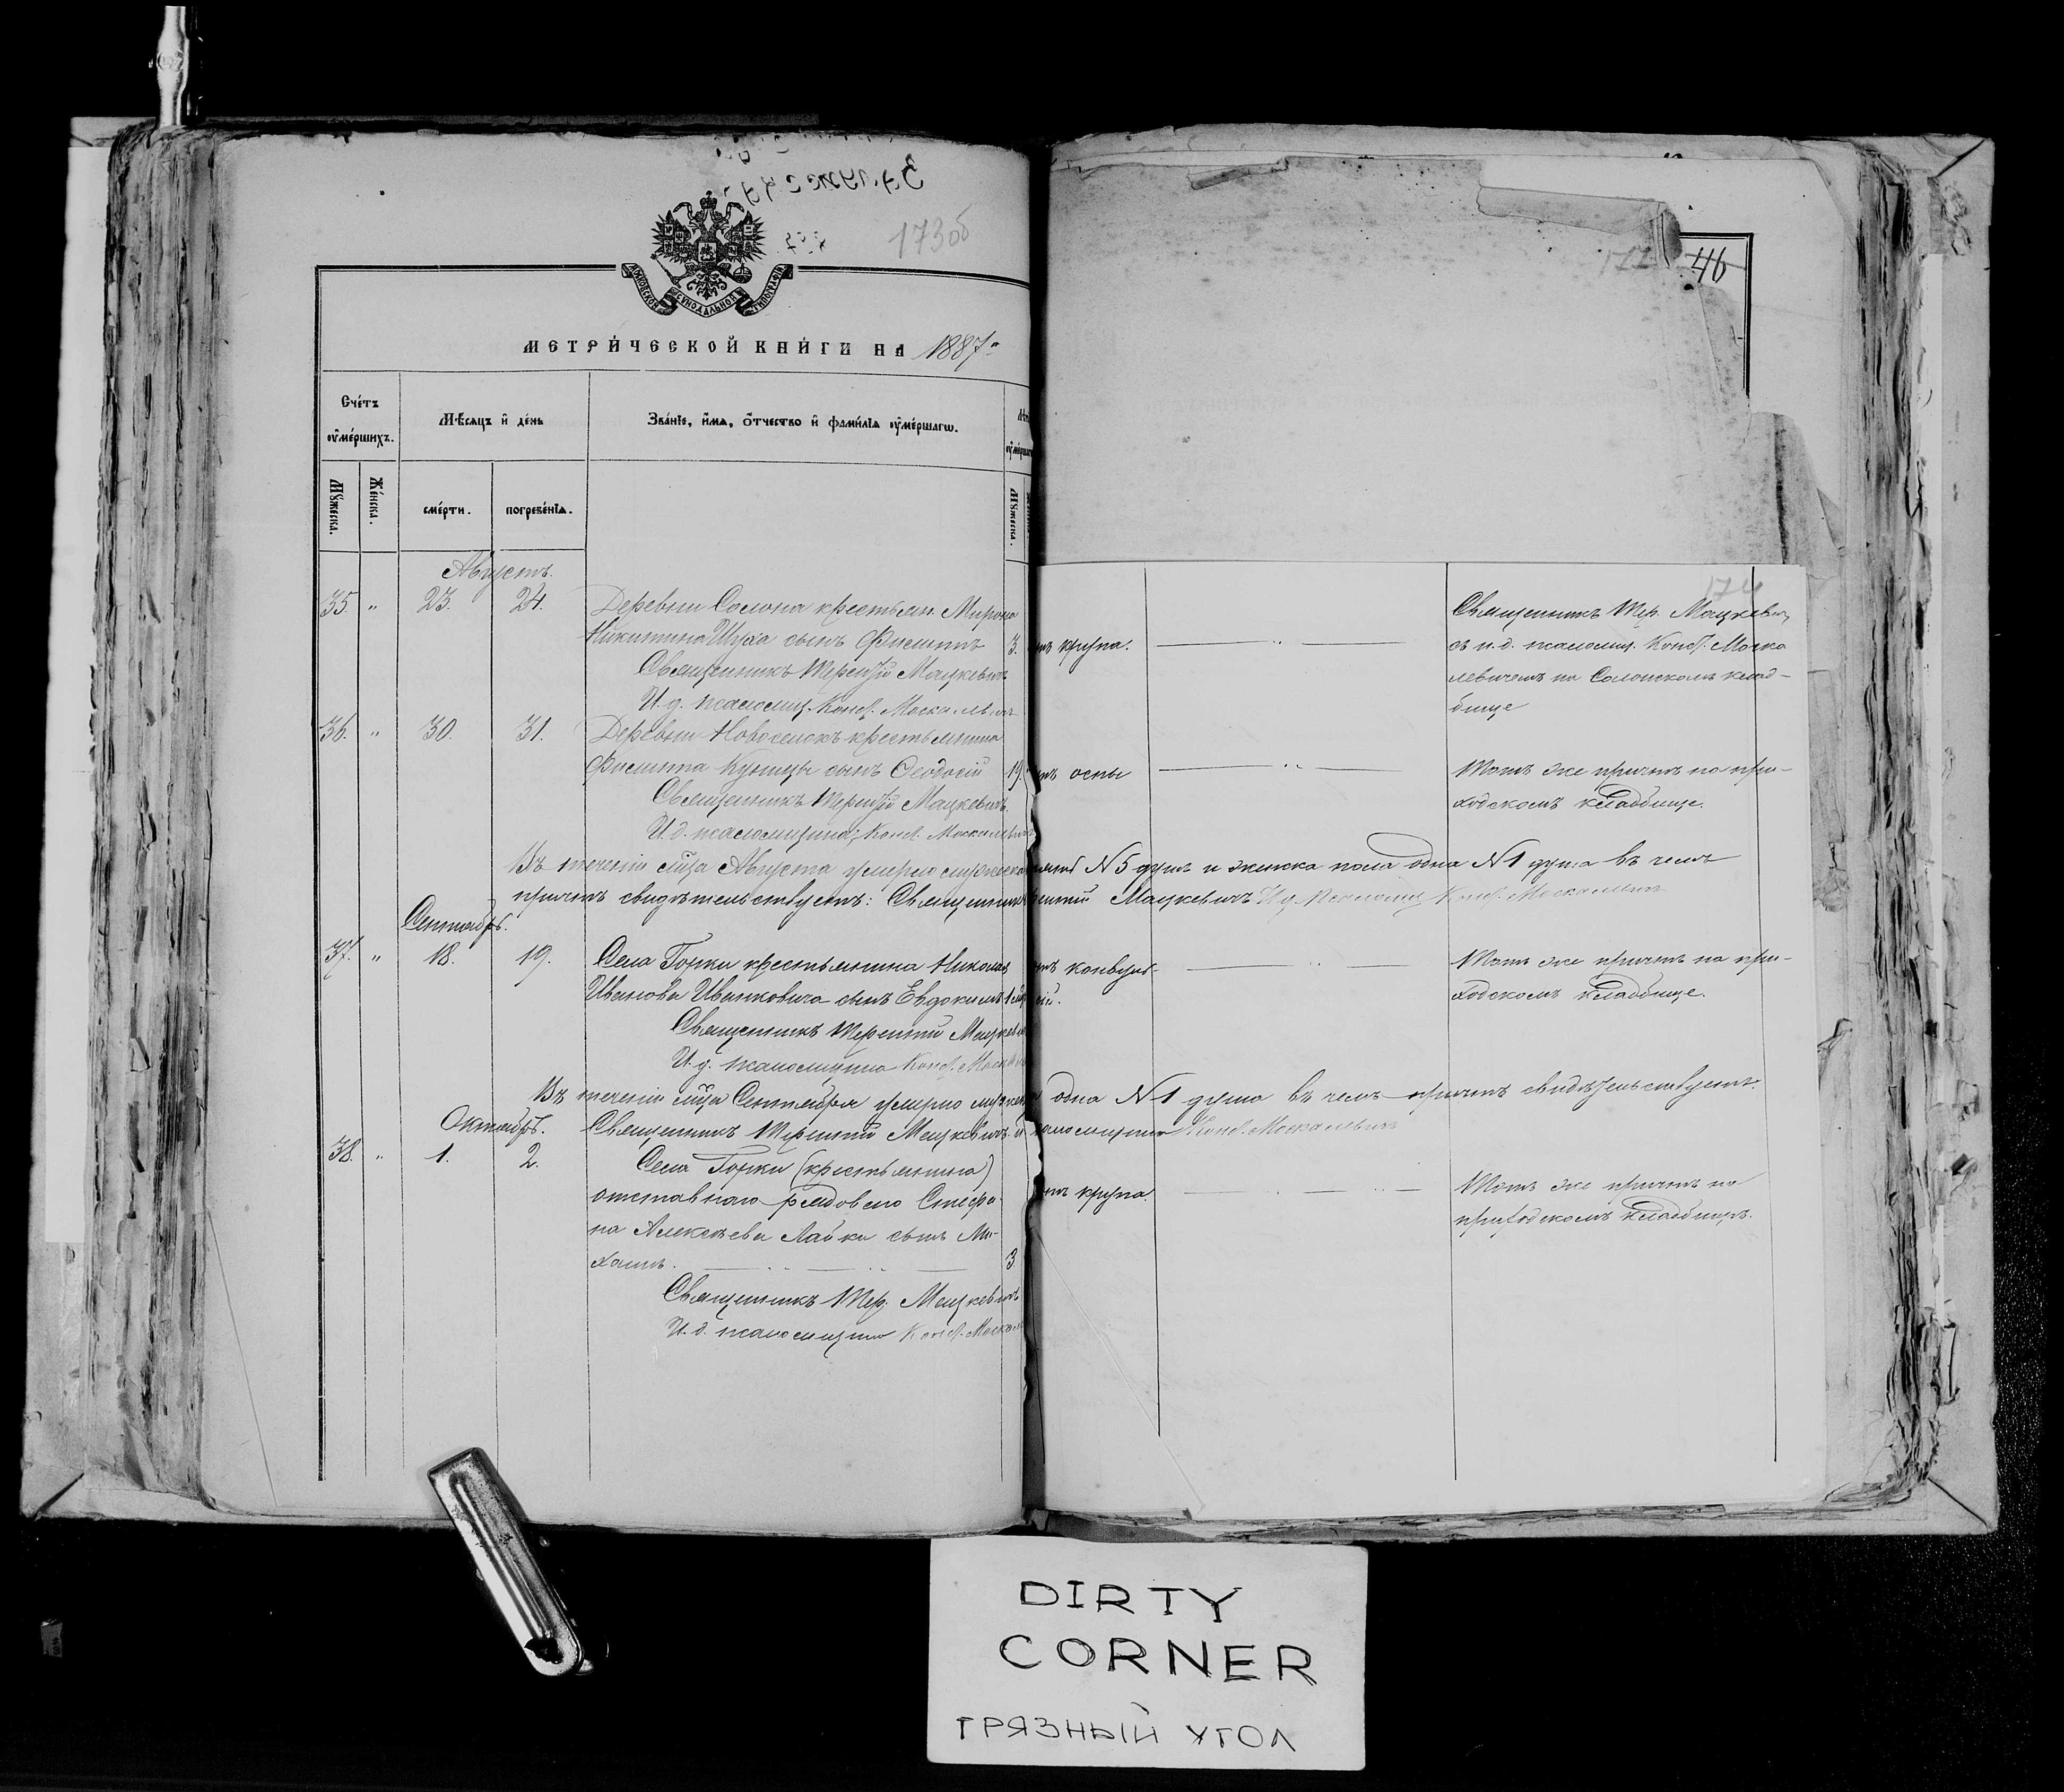 173об
46
МОСКОВСКОЙ СѴНОДАЛЬНОЙ ТИПОГРАФІИ
МЕТРИ́ЧЕСКОЙ КНИ́ГИ НА 1887
Сче́тъ ᲂу҆ме́ршихъ.
Мѣ́сяцъ и҆ де́нь
Зва́нїе, и҆́мѧ, ѻ҆́тчество и҆ фами́лїѧ ᲂу҆ме́ршагѡ.
Мꙋ́жеска.
Же́нска.
сме́рти.
погребе́нїѧ.
Мꙋ́жеска.
Августъ.
35. " 23. 24. Деревни Солона крестьян. Мирона
Никитина Шуха сынъ Филиппъ 3. отъ крупа.
Священникъ Терентій Мацкевичъ
И. д. псаломщ. Конст. Москалевичъ
Священникъ Тер. Мацкевичъ
съ и. д. псаломщ. Конст. Моска
левичемъ на Солонскомъ клад-
бище
36. " 30. 31. Деревни Новоселокъ крестьянина
Филиппа сынъ Ѳеодосій 19 отъ оспы
Священникъ Терентій Мацкевичъ
И. д. псаломщика Конст. Москалевичъ
Тотъ же причтъ на при-
ходскомъ кладбище.
Въ теченіи м-ца Августа умерло мужеска N 5 душъ и женска пола одна N 1 душа въ чемъ
причтъ свидѣтельствуетъ: Священникъ Терентій Мацкевичъ И. д. псаломщ. Конст. Москалевичъ
Сентябрь.
37. " 18. 19. Села Горки крестьянина Николая отъ конвуль-
Иванова Иванковича сынъ Евдокимъ 1 сій.
Священникъ Терентій Мацкевичъ
И. д. псаломщика Конст. Москалевичъ
Тотъ же причтъ на при-
ходскомъ кладбище.
Въ теченіи м-ца Сентября умерло мужеска одна N 1 душа въ чемъ причтъ свидѣтельствуетъ.
Священникъ Терентій Мацкевичъ. псаломщика Конст. Москалевичъ
Октябрь.
38. " 1. 2. Села Горки (крестьянина)
отставнаго рядоваго Стефа отъ крупа.
на Алексѣева Лайки сынъ Ми-
хаилъ. 3
Священникъ Тер. Мацкевичъ
И. д. псаломщика Конст. Москал
Тотъ же причтъ на
приходскомъ кладбищѣ.
DIRTY
CORNER
ГРЯЗНЫЙ УГОЛ